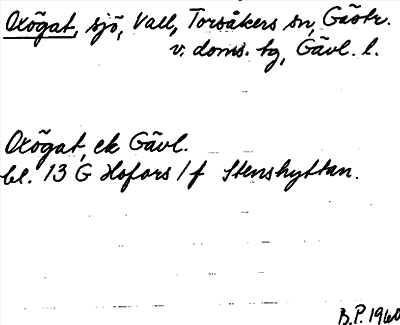 Oxögat, sjö, Vall, Torsåkers sn, Gästr.
v. doms. hg, Gävl. l.
Oxögat, ek Gävl.
bl. 13 G Hofors 1 f Stenshyttan.
B.P. 1960